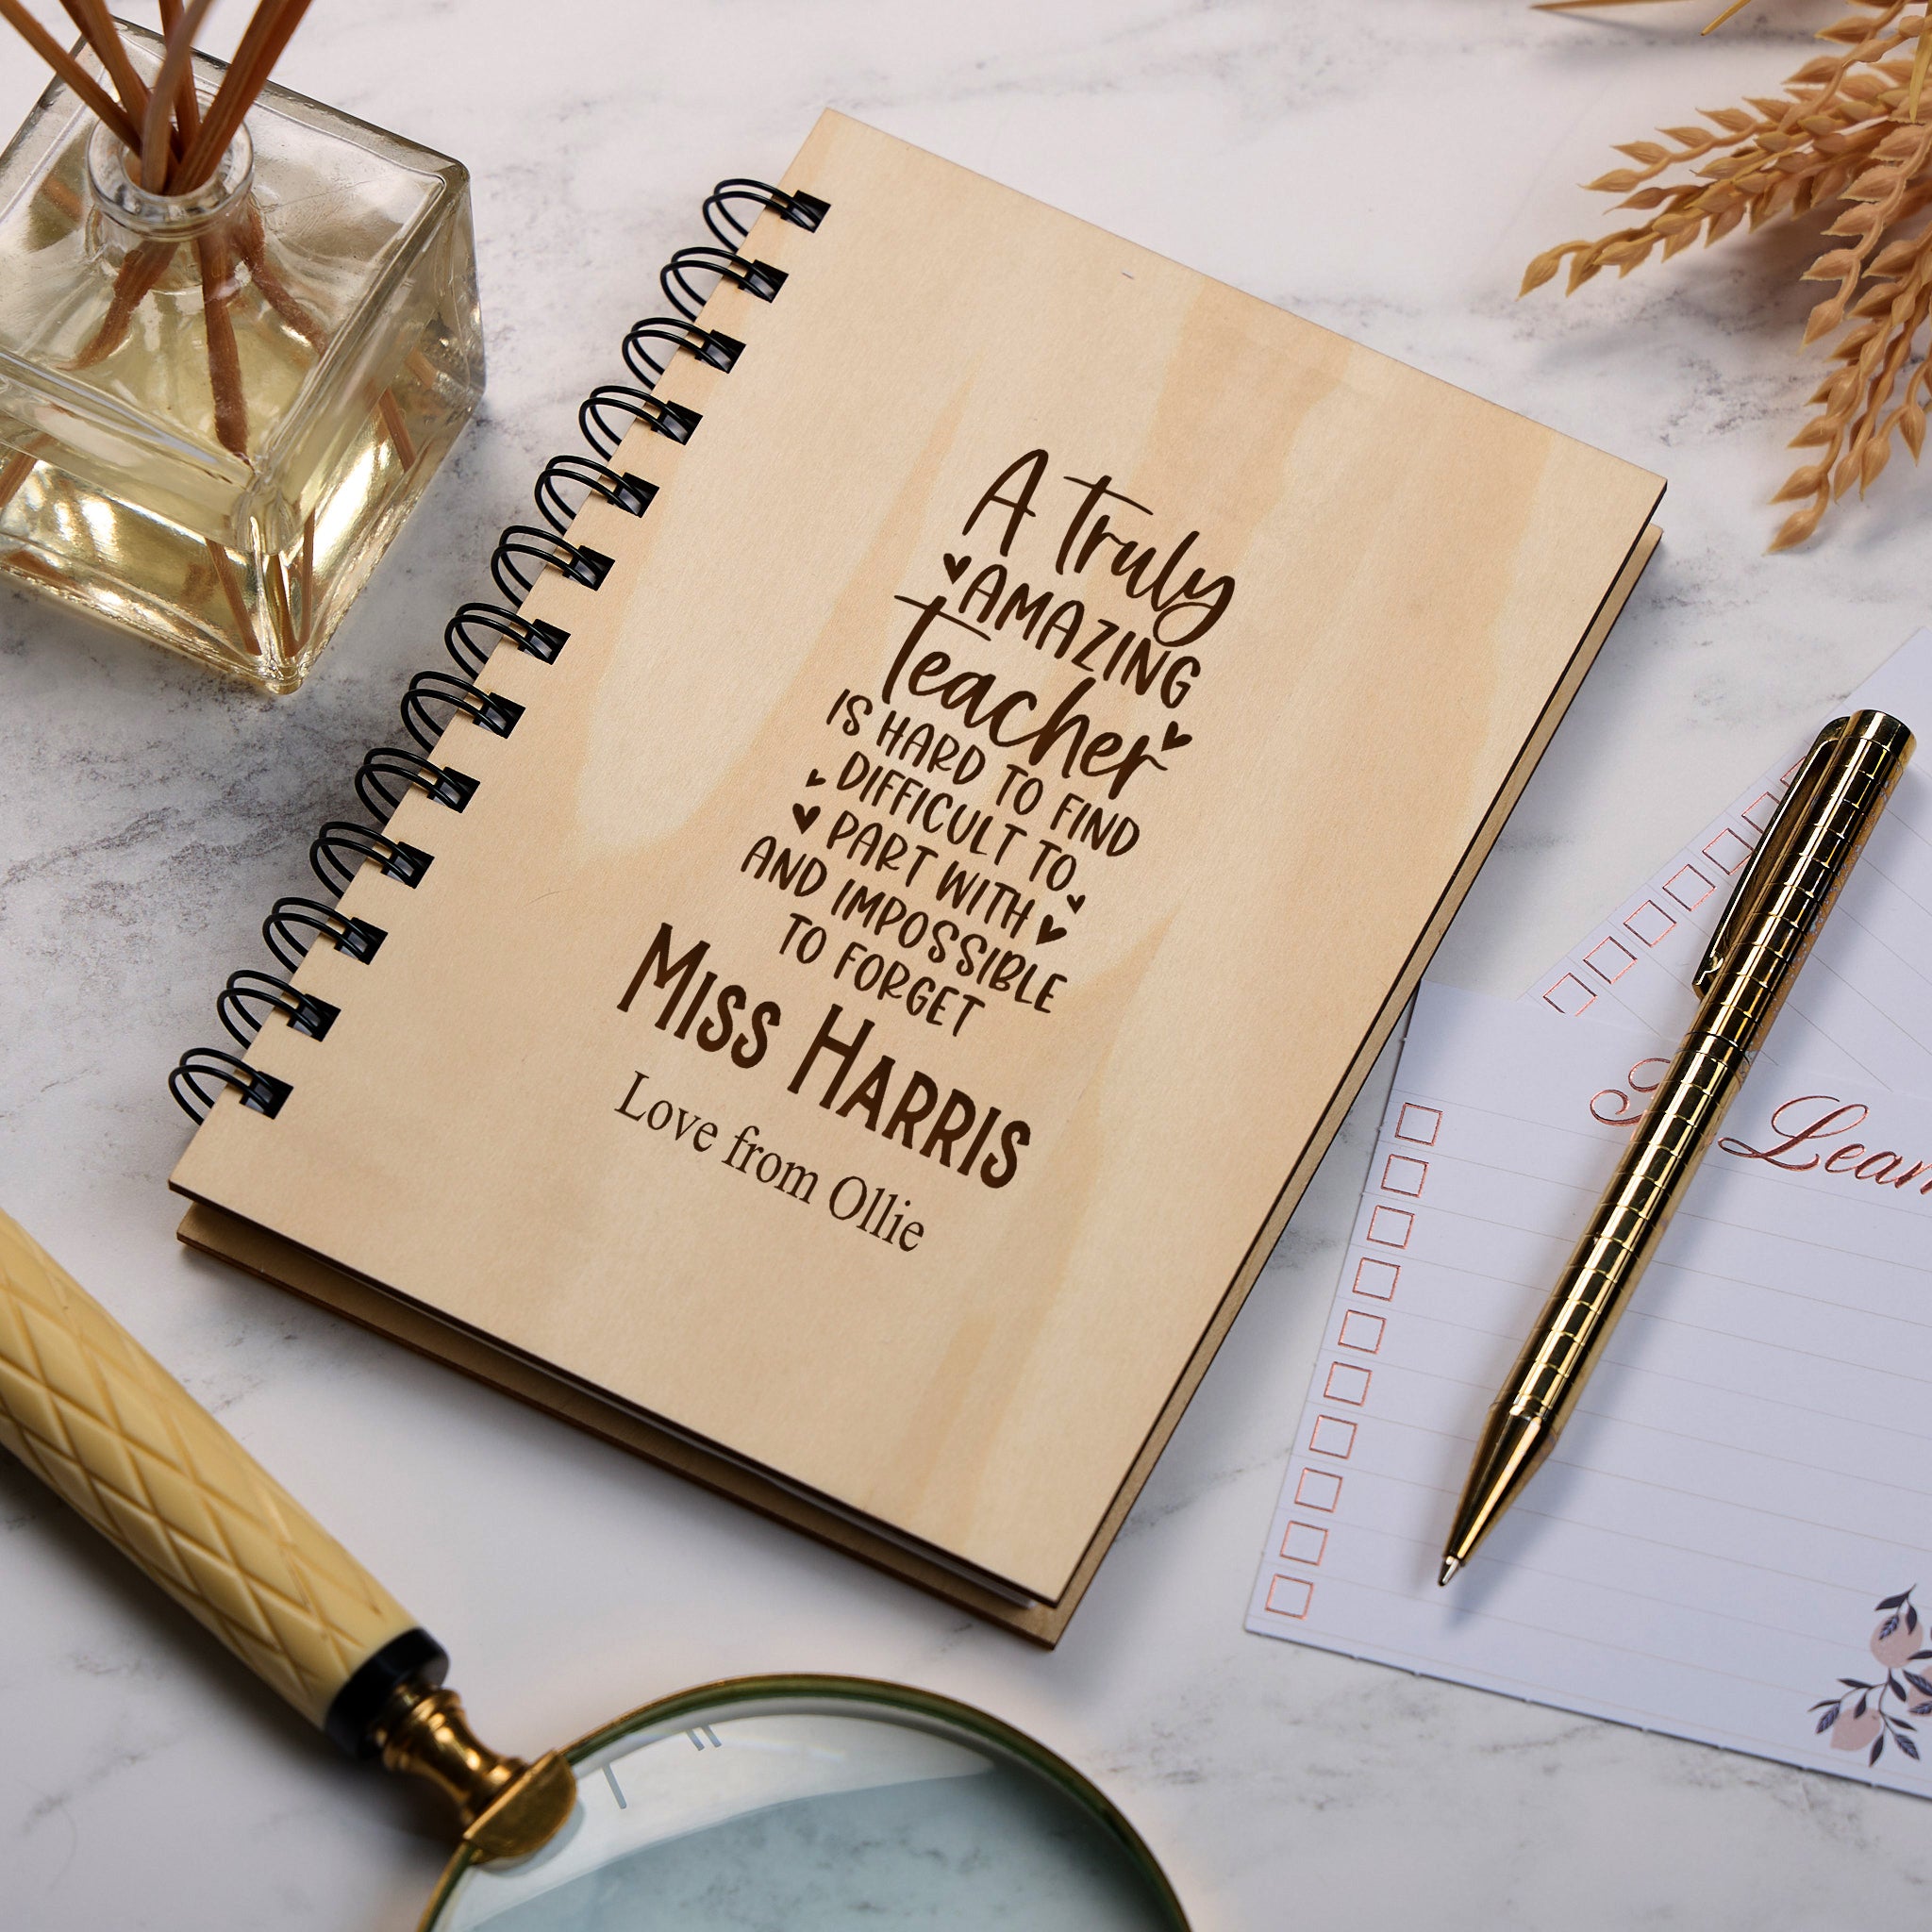 A Truly
AMAZING
Teacher
IS HARD TO FIND
DIFFICULT TO
PART WITH
AND IMPOSSIBLE
TO FORGET
MISS HARRIS
Love from Ollie